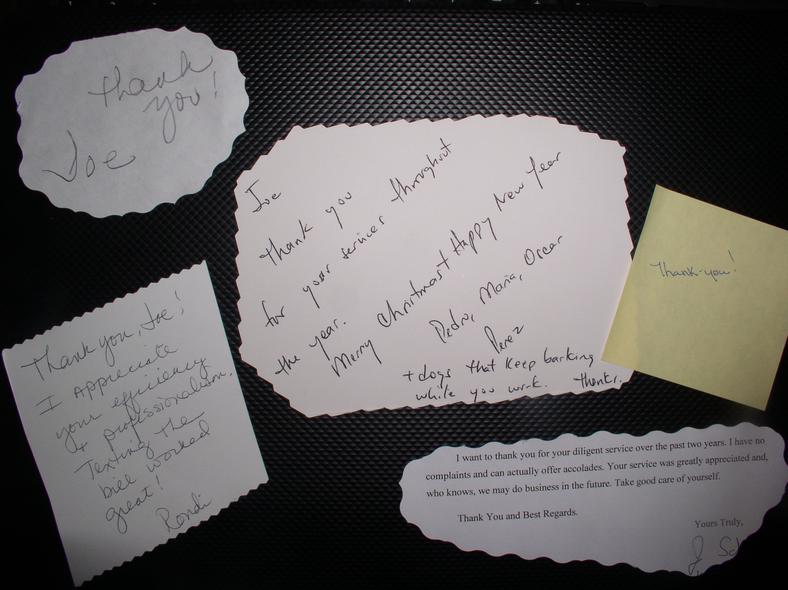 Thank
you!
Joe
Joe
Thank you
for your services throughout
the year.
Merry Christmas + Happy New Year
Pedro, Maria, Oscar
Perez
+ dogs that keep barking
while you work. thanks.
Thank-you!
Thank you, Joe!
I appreciate
your efficiency
+ professionalism.
Texting the
bill worked
great!
Rondi
I want to thank you for your diligent service over the past two years. I have no
complaints and can actually offer accolades. Your service was greatly appreciated and,
who knows, we may do business in the future. Take good care of yourself.
Thank You and Best Regards.
Yours Truly,